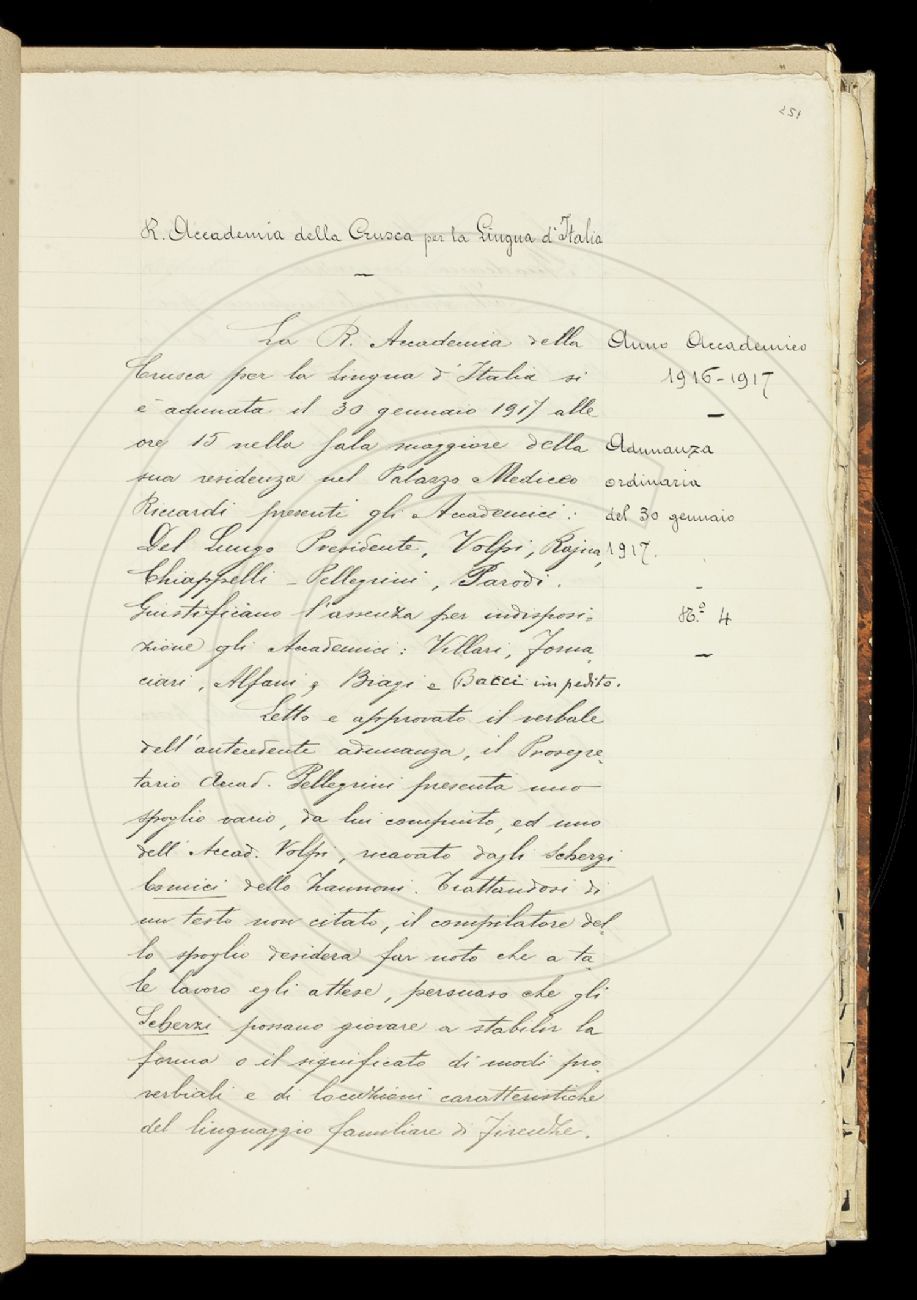 251
R. Accademia della Crusca per la Lingua d'Italia
La R. Accademia della
Crusca per la Lingua d'Italia si
è adunata il 30 gennaio 1917 alle
ore 15 nella sala maggiore della
sua residenza nel Palazzo Mediceo
Riccardi presenti gli Accademici:
Del Lungo Presidente, Volpi, Rajna,
Chiappelli - Pellegrini, Parodi.
Giustificano l'assenza per indisposi-
zione gli Accademici: Villari, Forna-
ciari, Alfani, Biagi e Bacci impedito.
Letto e approvato il verbale
dell'antecedente adunanza, il Prosegre-
tario Accad. Pellegrini presenta uno
spoglio vario, da lui compiuto, ed uno
dell'Accad. Volpi, ricavato dagli Scherzi
Comici dello Zannoni. Trattandosi di
un testo non citato, il compilatore del-
lo spoglio desidera far noto che a ta-
le lavoro egli attese, persuaso che gli
Scherzi possano giovare a stabilir la
forma o il significato di modi pro-
verbiali e di locuzioni caratteristiche
del linguaggio familiare di Firenze.
Anno Accademico
1916-1917
Adunanza
ordinaria
del 30 gennaio
1917.
N.º 4